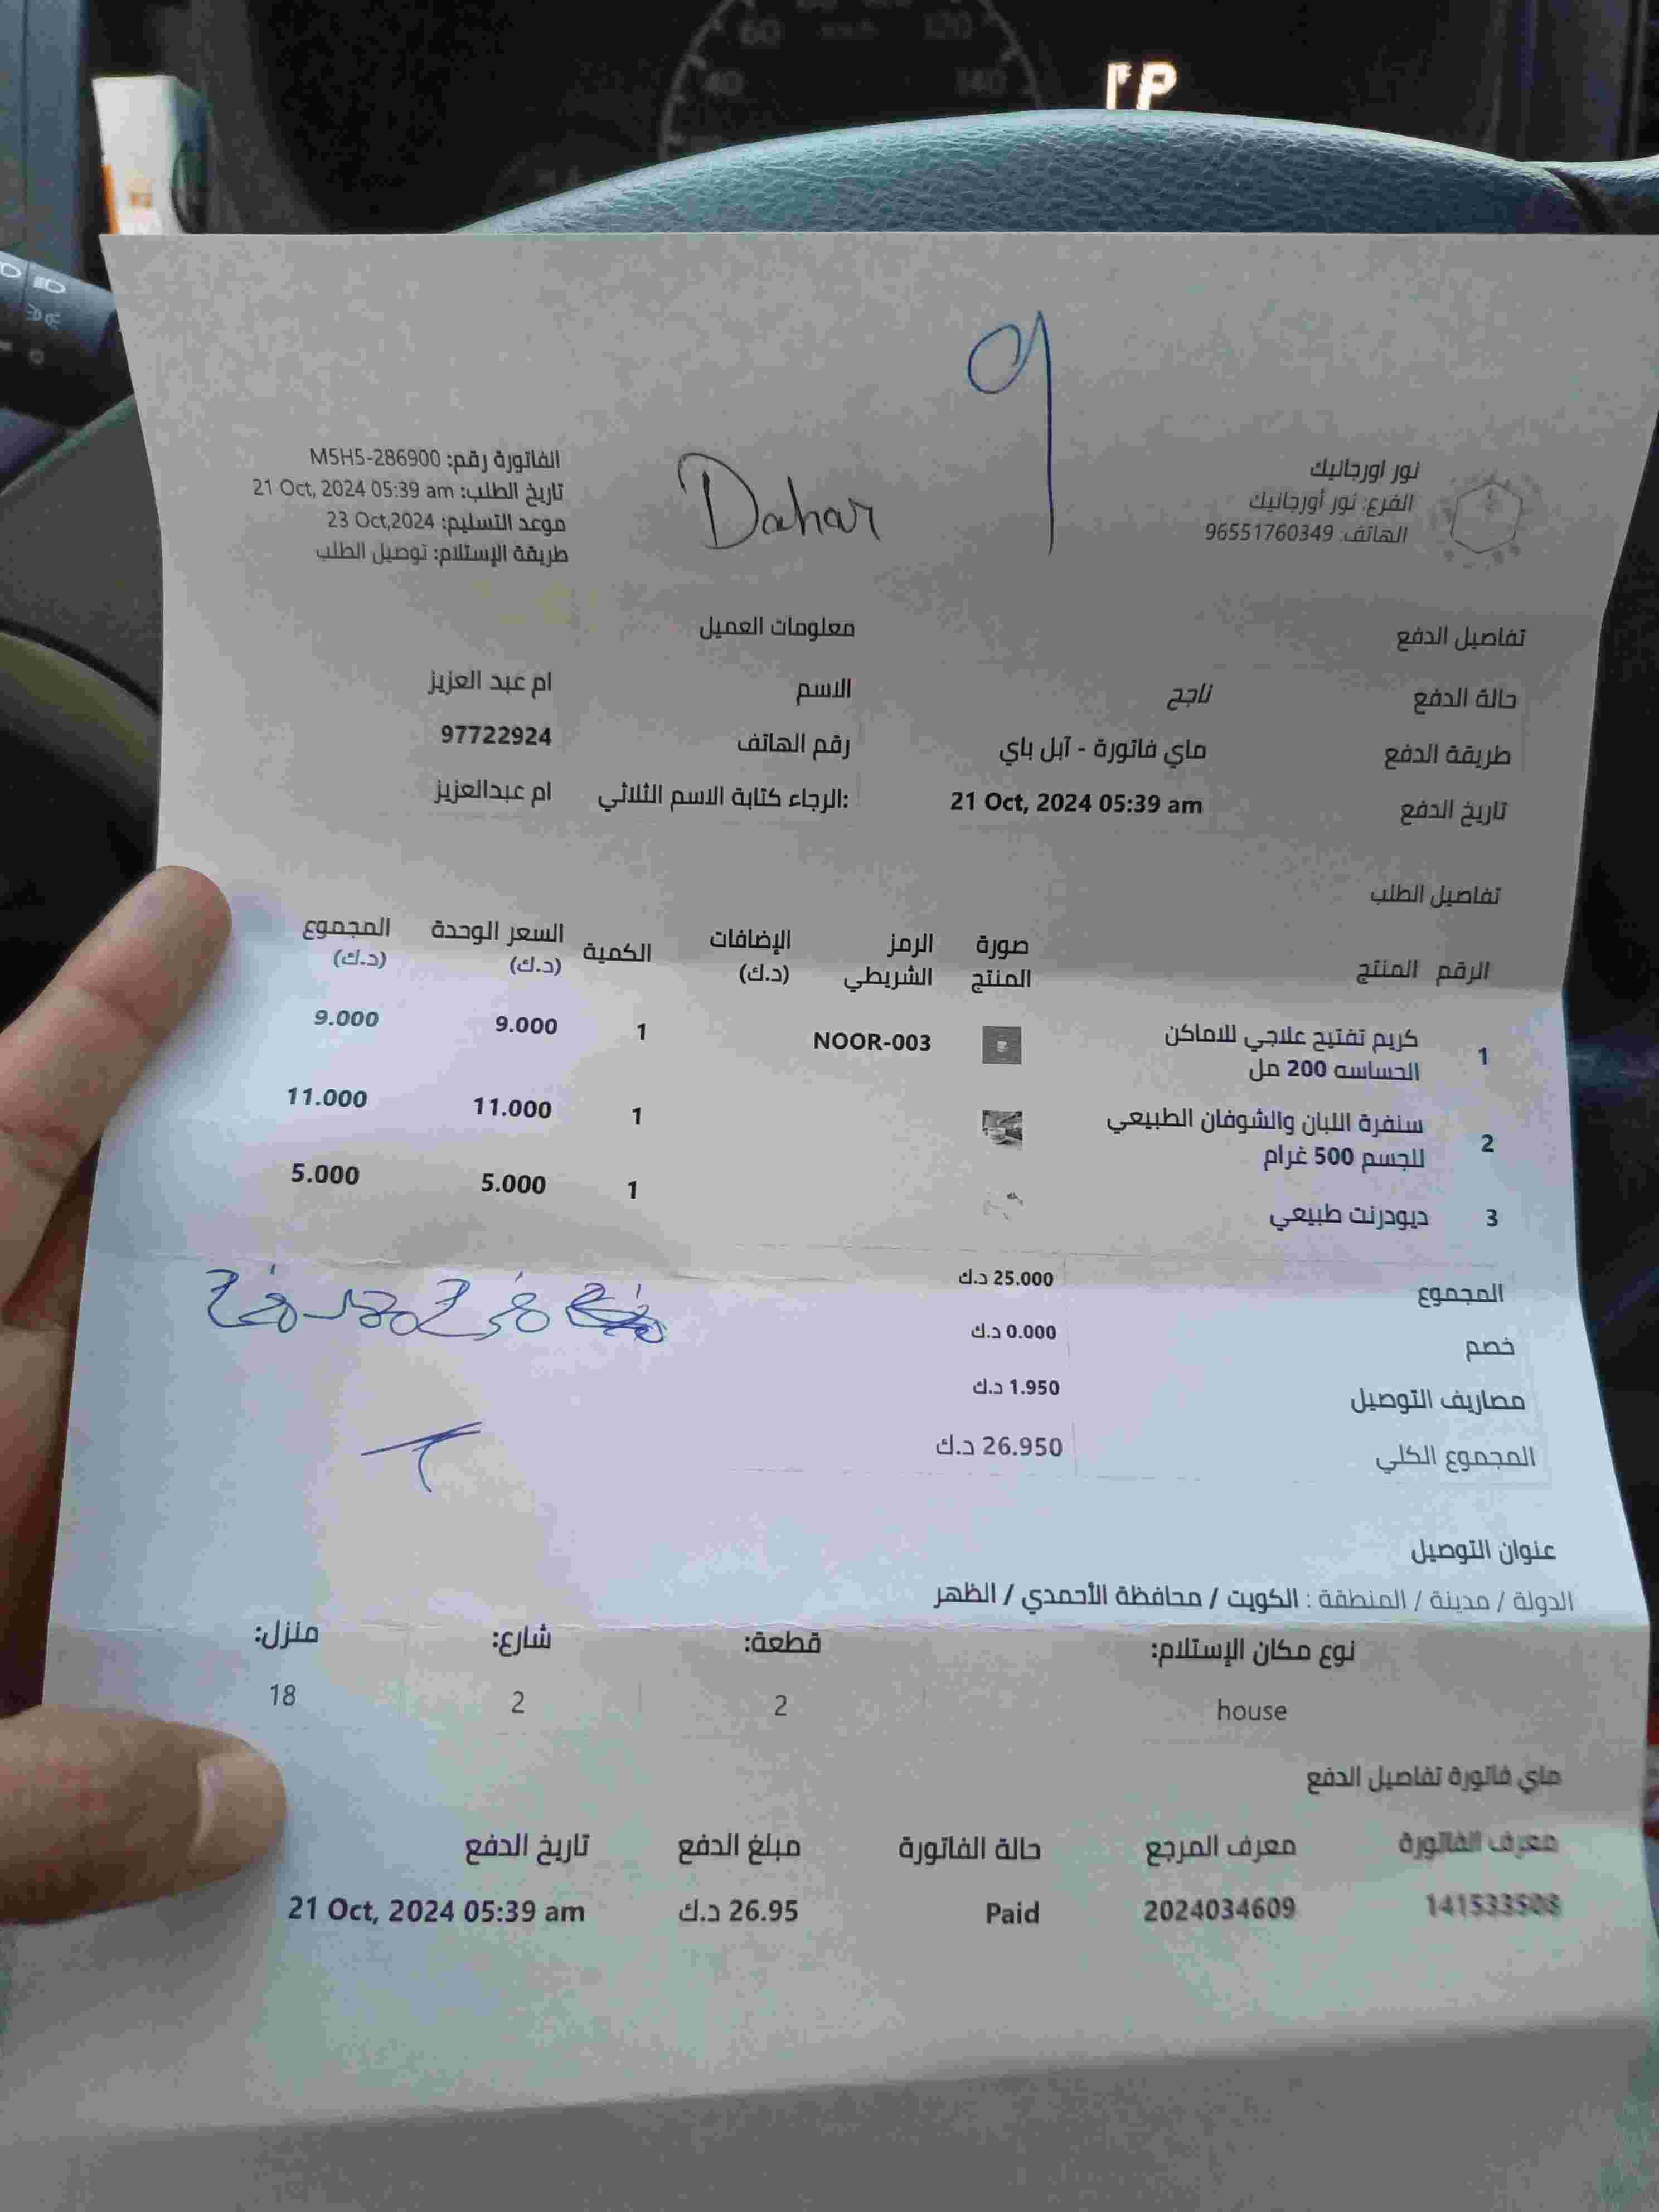 60
120
40
140
P
9
Dahar
نور اورجانيك
الفرع: نور أورجانيك
الهاتف: 96551760349
الفاتورة رقم: M5H5-286900
تاريخ الطلب: 21 Oct, 2024 05:39 am
موعد التسليم: 23 Oct,2024
طريقة الإستلام: توصيل الطلب
تفاصيل الدفع
حالة الدفع ناجح
طريقة الدفع ماي فاتورة - آبل باي
تاريخ الدفع 21 Oct, 2024 05:39 am
معلومات العميل
الاسم ام عبد العزيز
رقم الهاتف 97722924
الرجاء كتابة الاسم الثلاثي: ام عبدالعزيز
تفاصيل الطلب
الرقم المنتج صورة المنتج الرمز الشريطي الإضافات (د.ك) الكمية السعر الوحدة (د.ك) المجموع (د.ك)
1 كريم تفتيح علاجي للاماكن NOOR-003 1 9.000 9.000
الحساسه 200 مل
2 سنفرة اللبان والشوفان الطبيعي 1 11.000 11.000
للجسم 500 غرام
3 ديودرنت طبيعي 1 5.000 5.000
المجموع 25.000 د.ك
خصم 0.000 د.ك
مصاريف التوصيل 1.950 د.ك
المجموع الكلي 26.950 د.ك
عنوان التوصيل
الدولة / مدينة / المنطقة : الكويت / محافظة الأحمدي / الظهر
نوع مكان الإستلام: قطعة: شارع: منزل:
house 2 2 18
ماي فاتورة تفاصيل الدفع
معرف الفاتورة معرف المرجع حالة الفاتورة مبلغ الدفع تاريخ الدفع
141533508 2024034609 Paid 26.95 د.ك 21 Oct, 2024 05:39 am